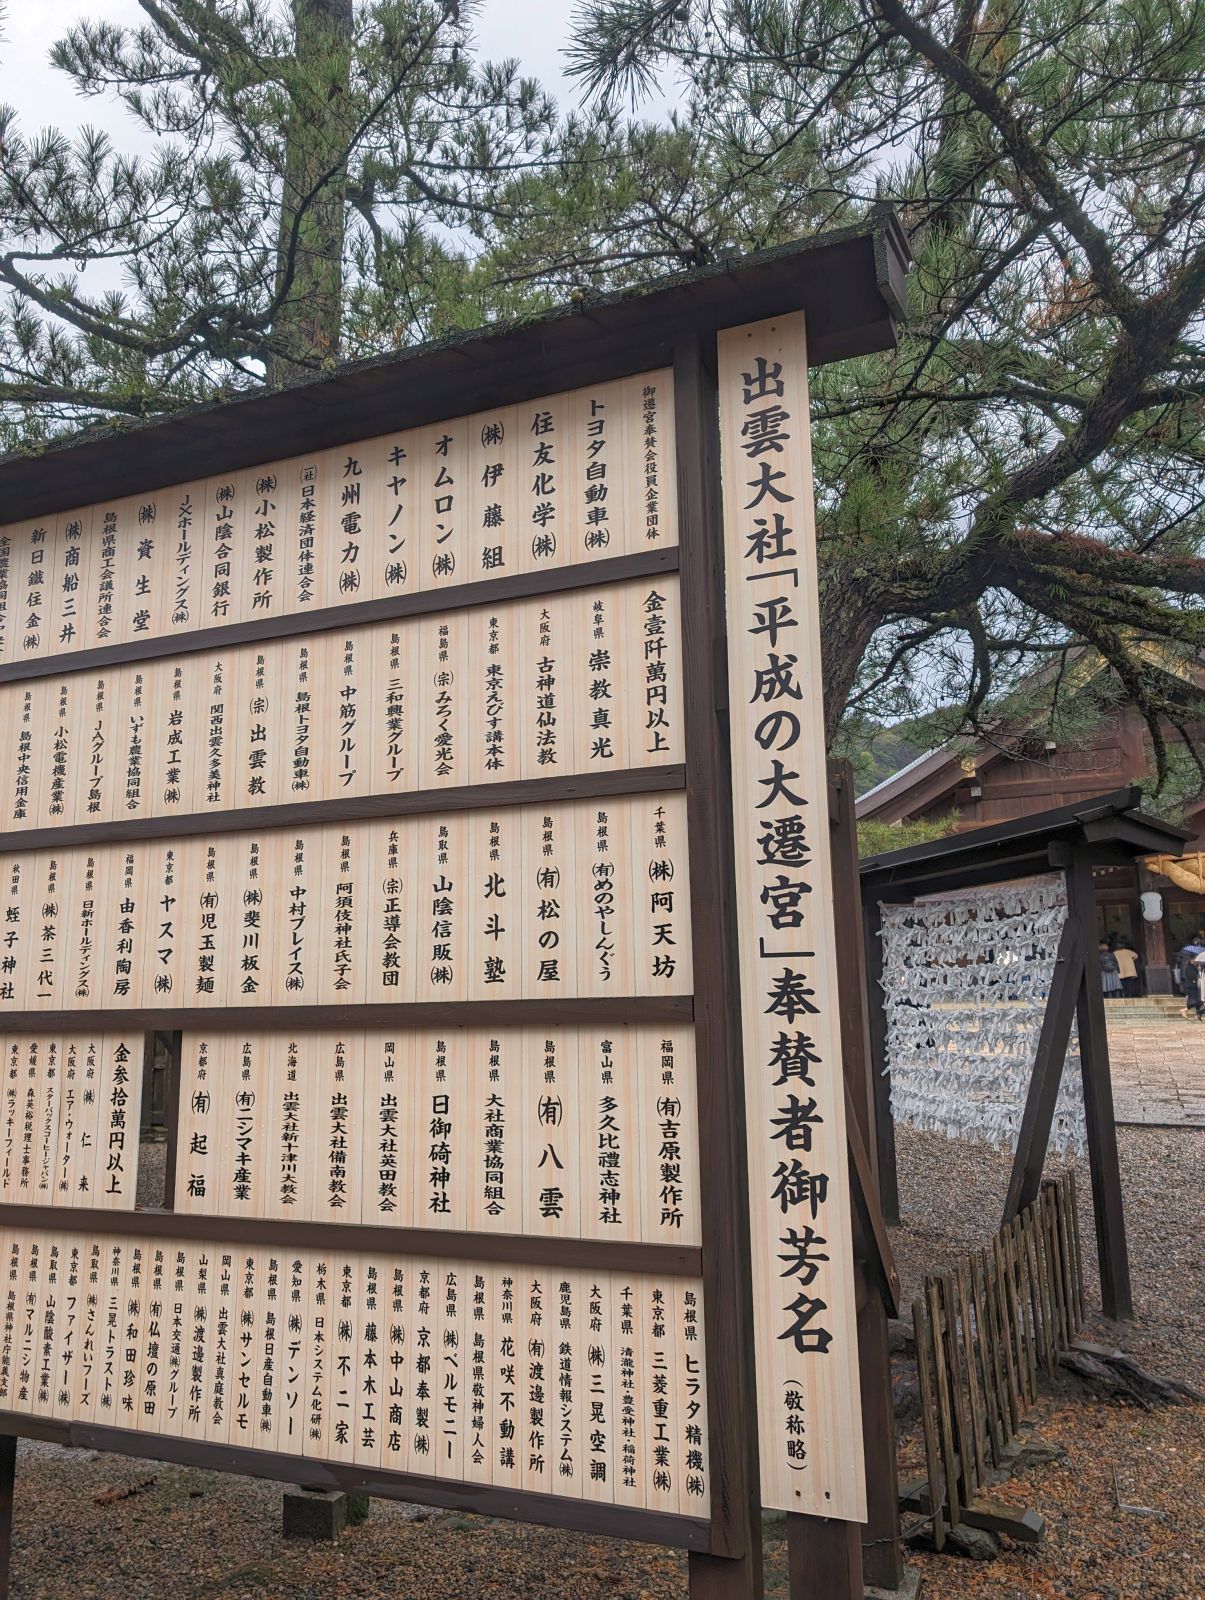 出雲大社「平成の大遷宮」奉賛者御芳名(敬称略)
御遷宮奉賛会役員企業団体
トヨタ自動車㈱
住友化学㈱
㈱伊藤組
オムロン㈱
キヤノン㈱
九州電力㈱
(一社)日本経済団体連合会
㈱小松製作所
㈱山陰合同銀行
JXホールディングス㈱
㈱資生堂
島根県商工会議所連合会
㈱商船三井
新日鐵住金㈱
金壹阡萬円以上
岐阜県 崇教真光
大阪府 古神道仙法教
東京都 東京えびす講本体
福島県 (宗)みろく愛光会
島根県 三和興業グループ
島根県 中筋グループ
島根県 島根トヨタ自動車㈱
島根県 (宗)出雲教
大阪府 関西出雲久多美神社
島根県 岩成工業㈱
島根県 いずも農業協同組合
島根県 JAグループ島根
島根県 小松電機産業㈱
島根県 島根中央信用金庫
千葉県 ㈱阿天坊
島根県 ㈲めのやしんぐう
島根県 ㈲松の屋
島根県 北斗塾
鳥取県 山陰信販㈱
兵庫県 (宗)正導会教団
島根県 阿須伎神社氏子会
島根県 中村ブレイス㈱
島根県 ㈱斐川板金
島根県 ㈲児玉製麺
東京都 ヤスマ㈱
福岡県 由香利陶房
島根県 日新ホールディングス㈱
島根県 ㈱茶三代一
秋田県 蛭子神社
福岡県 ㈲吉原製作所
富山県 多久比禮志神社
島根県 ㈲八雲
島根県 大社商業協同組合
島根県 日御碕神社
岡山県 出雲大社英田教会
広島県 出雲大社備南教会
北海道 出雲大社新十津川大教会
広島県 ㈲ニシマキ産業
京都府 ㈲起福
金参拾萬円以上
大阪府 ㈱仁来
大阪府 エア・ウォーター㈱
東京都 スターバックスコーヒージャパン㈱
愛媛県 森英裕税理士事務所
東京都 ㈱ラッキーフィールド
島根県 ヒラタ精機㈱
東京都 三菱重工業㈱
千葉県 清瀧神社・豊受神社・稲荷神社
大阪府 ㈱三晃空調
鹿児島県 鉄道情報システム㈱
大阪府 ㈲渡邊製作所
神奈川県 花咲不動講
島根県 島根県敬神婦人会
広島県 ㈱ベルモニー
京都府 京都奉製㈱
島根県 ㈱中山商店
島根県 藤本木工芸
東京都 ㈱不二家
栃木県 日本システム化研㈱
愛知県 ㈱デンソー
島根県 島根日産自動車㈱
東京都 ㈱サンセルモ
岡山県 出雲大社真庭教会
山梨県 ㈱渡邊製作所
島根県 日本交通㈱グループ
島根県 ㈲仏壇の原田
島根県 ㈱和田珍味
神奈川県 三晃トラスト㈱
鳥取県 ㈱さんれいフーズ
東京都 ファイザー㈱
鳥取県 山陰酸素工業㈱
島根県 ㈲マルニシ物産
島根県 島根県神社庁能義支部